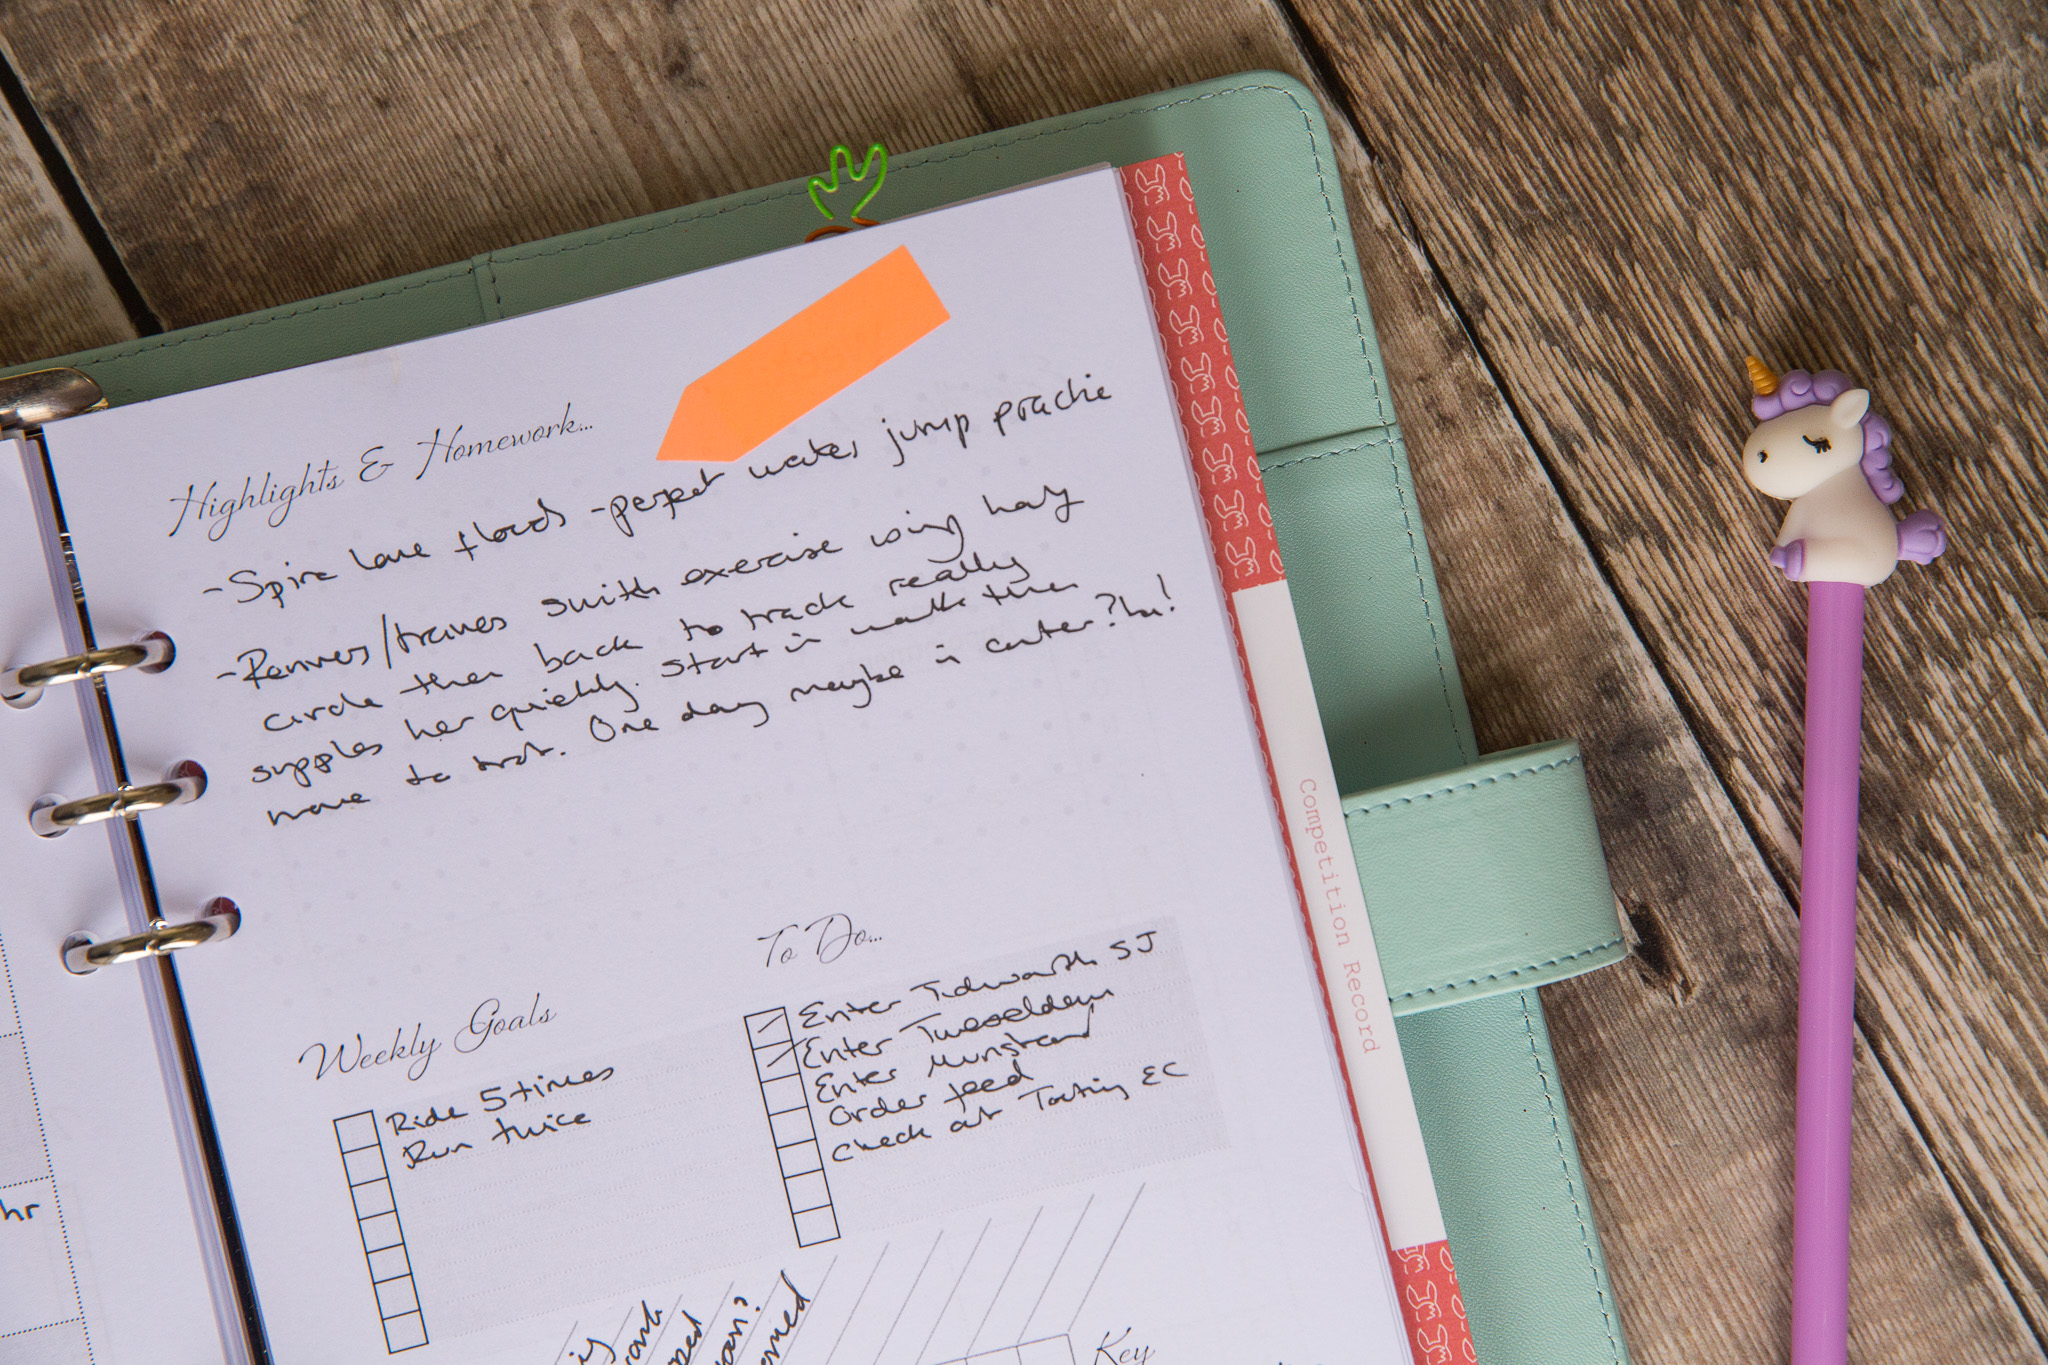 Highlights & Homework...
- Spire lane floods - perfect water jump practice
- Renvers/travers switch exercise using half
circle then back to track really
supples her quickly. Start in walk then
move to trot. One day maybe in canter? ha!
Weekly Goals
Ride 5 times
Run twice
To Do...
Enter Tidworth SJ
Enter Tweseldown
Enter Munstead
Order feed
Check out Tooting EC
Competition Record
hr
Key